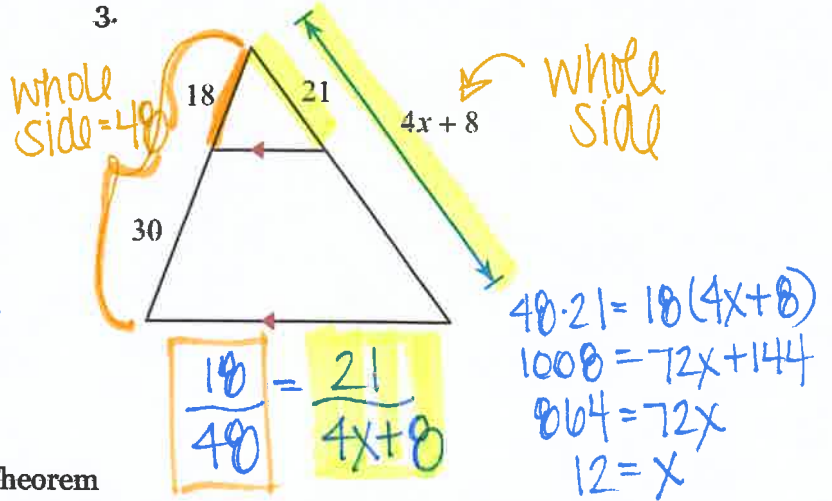 3.
whole
side=48
18
21
4x + 8
whole
side
30
18/48 = 21/4x+8
48·21=18(4x+8)
1008=72x+144
864=72x
12=x
heorem